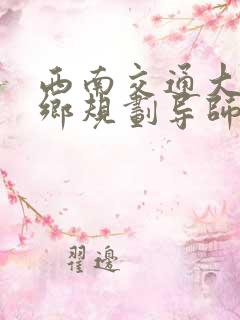 西南交通大
鄉規劃导師
翟邊